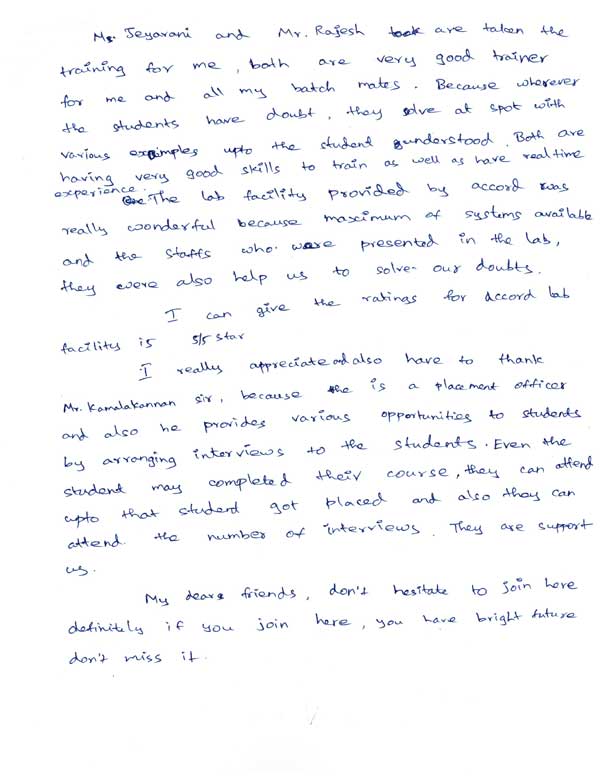 Ms. Jeyarani and Mr. Rajesh took are taken the
training for me, both are very good trainer
for me and all my batch mates. Because wherever
the students have doubt, they solve at spot with
various examples upto the student understood. Both are
having very good skills to train as well as have real time
experience.
The lab facility provided by accord was
really wonderful because maximum of systems available
and the staffs who were presented in the lab,
they were also help us to solve our doubts.
I can give the ratings for accord lab
facility is 5/5 star
I really appreciate and also have to thank
Mr. Kamalakannan sir, because he is a placement officer
and also he provides various opportunities to students
by arranging interviews to the students. Even the
student may completed their course, they can attend
upto that student got placed and also they can
attend the number of interviews. They are support
us.
My dears friends, don't hesitate to join here
definitely if you join here, you have bright future
don't miss it.